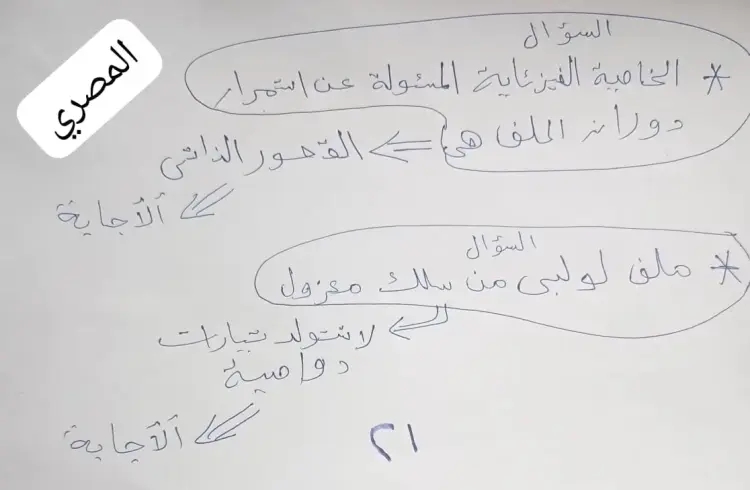 المصري
السؤال
* الخاصية الفيزيائية المسئولة عن استمرار
دوران الملف هى ⇐ القصور الذاتى
⇐ ألأجابة
السؤال
* ملف لولبى من سلك معزول
⇐ لا تتولد تيارات
دوامية
⇐ ألأجابة
٢١